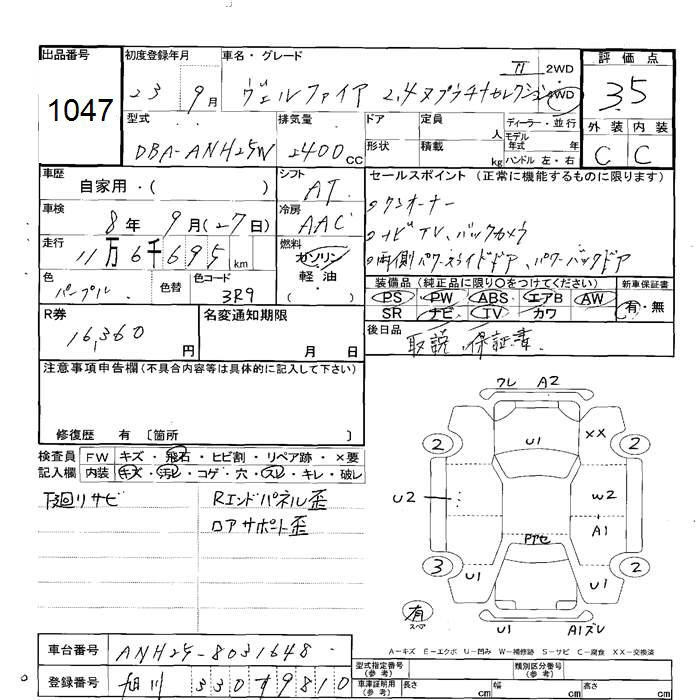 出品番号
1047
初度登録年月
23 9月
車名・グレード
ヴェルファイア 2.4Zプラチナセレクション
II 2WD
4WD
評価点
3.5
外装 内装
C C
型式
DBA-ANH25W
排気量
2400cc
ドア
定員
人
ディーラー・並行
モデル
年式 年
形状
積載
kg
ハンドル 左・右
車歴
自家用・( )
シフト
AT
セールスポイント (正常に機能するものに限ります)
ワンオーナー
ナビTV、バックカメラ
両側パワースライドドア、パワーバックドア
車検
8年 9月(27日)
冷房
AAC
走行
11万6千695km
燃料
ガソリン
軽油
( )
色
パープル
色替
色コード
3R9
装備品 (純正品に限り○をつけてください)
PS PW ABS エアB AW
SR ナビ TV カワ
新車保証書
有・無
R券
16,360円
名変通知期限
月 日
後日品
取説、保証書
注意事項申告欄(不具合内容等は具体的に記入して下さい)
修復歴 有 〔箇所 〕
検査員
記入欄
FW キズ・飛石・ヒビ割・リペア跡・×要
内装 キズ・汚レ・コゲ・穴・スレ・キレ・破レ
下廻リサビ
Rエンドパネル歪
ロアサポート歪
ワレ A2
2 U1 XX 2
U2 W2
A1
3 U1 U1 2
有
スペア
U1 A1ズレ
A-キズ E-エクボ U-凹み W-補修跡 S-サビ C-腐食 XX-交換済
車台番号
ANH25-8031648
登録番号
旭川 330 9810
型式指定番号
(参考)
類別区分番号
(参考)
車庫証明用
(参考)
長さ cm
幅 cm
高さ cm